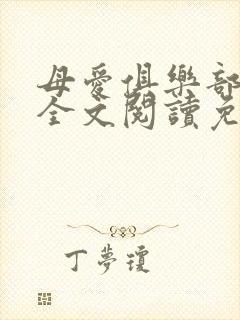 母愛俱樂部
全文閱讀免
丁夢瓊